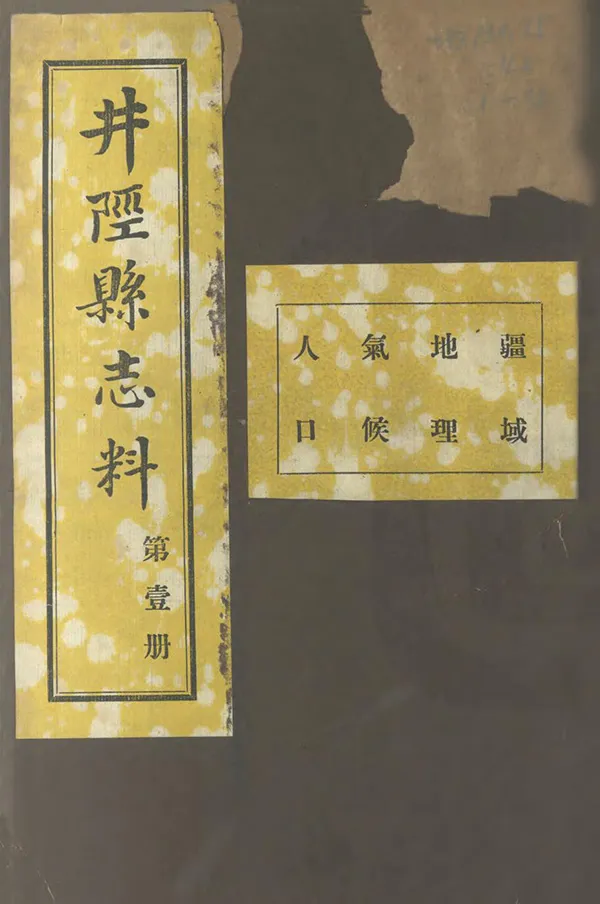 井陘縣志料
第壹册
疆域
地理
氣候
人口